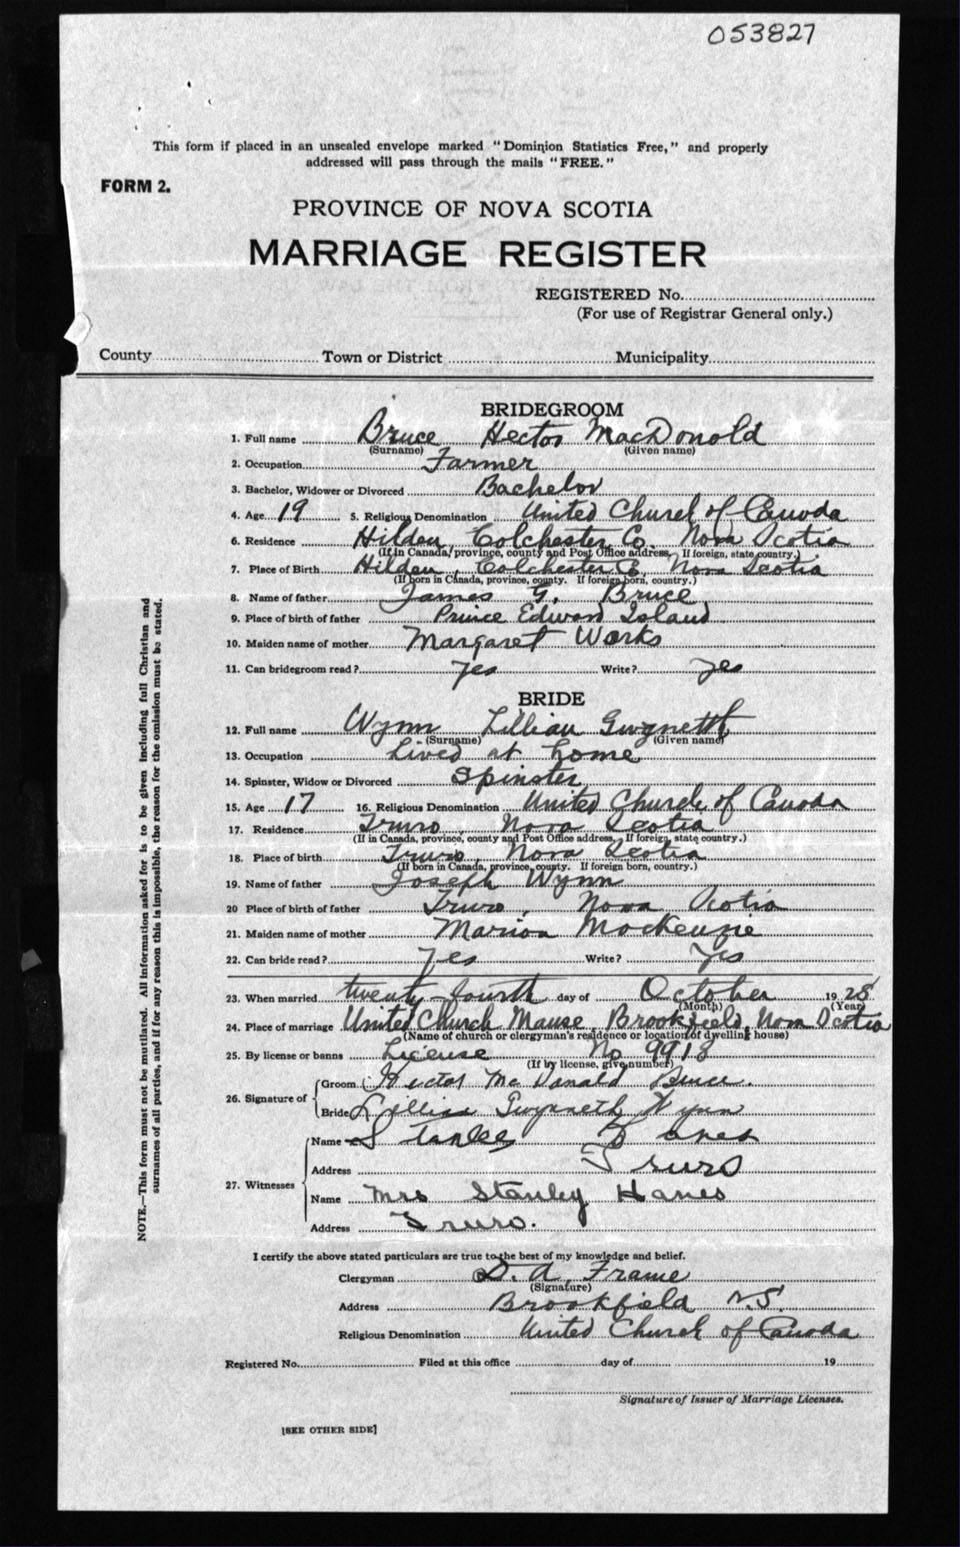 053827
This form if placed in an unsealed envelope marked "Dominion Statistics Free," and properly
addressed will pass through the mails "FREE."
FORM 2.
PROVINCE OF NOVA SCOTIA
MARRIAGE REGISTER
REGISTERED No.
(For use of Registrar General only.)
County Town or District Municipality
BRIDEGROOM
1. Full name Bruce Hector MacDonald
(Surname) (Given name)
2. Occupation Farmer
3. Bachelor, Widower or Divorced Bachelor
4. Age 19 5. Religious Denomination United Church of Canada
6. Residence Hilden, Colchester Co. Nova Scotia
(If in Canada, province, county and Post Office address. If foreign, state country.)
7. Place of Birth Hilden, Colchester Co. Nova Scotia
(If born in Canada, province, county. If foreign born, country.)
8. Name of father James G. Bruce
9. Place of birth of father Prince Edward Island
10. Maiden name of mother Margaret Works
11. Can bridegroom read? Yes Write? Yes
BRIDE
12. Full name Wynn Lillian Gwyneth
(Surname) (Given name)
13. Occupation Lived at home
14. Spinster, Widow or Divorced Spinster
15. Age 17 16. Religious Denomination United Church of Canada
17. Residence Truro, Nova Scotia
(If in Canada, province, county and Post Office address. If foreign, state country.)
18. Place of birth Truro, Nova Scotia
(If born in Canada, province, county. If foreign born, country.)
19. Name of father Joseph Wynn
20 Place of birth of father Truro, Nova Scotia
21. Maiden name of mother Marion MacKenzie
22. Can bride read? Yes Write? Yes
23. When married twenty-fourth day of October 1928
(Month) (Year)
24. Place of marriage United Church Manse, Brookfield, Nova Scotia
(Name of church or clergyman's residence or location of dwelling house)
25. By license or banns License No 9918
(If by license, give number)
26. Signature of
Groom Hector McDonald Bruce.
Bride Lillian Gwyneth Wynn
27. Witnesses
Name
Address Truro
Name Mrs Stanley Hanes
Address Truro.
I certify the above stated particulars are true to the best of my knowledge and belief.
Clergyman D. A. Frame
(Signature)
Address Brookfield N.S.
Religious Denomination United Church of Canada
Registered No. Filed at this office day of 19
Signature of Issuer of Marriage Licenses.
[SEE OTHER SIDE]
NOTE.—This form must not be mutilated. All information asked for is to be given including full Christian and
surnames of all parties, and if for any reason this is impossible, the reason for the omission must be stated.